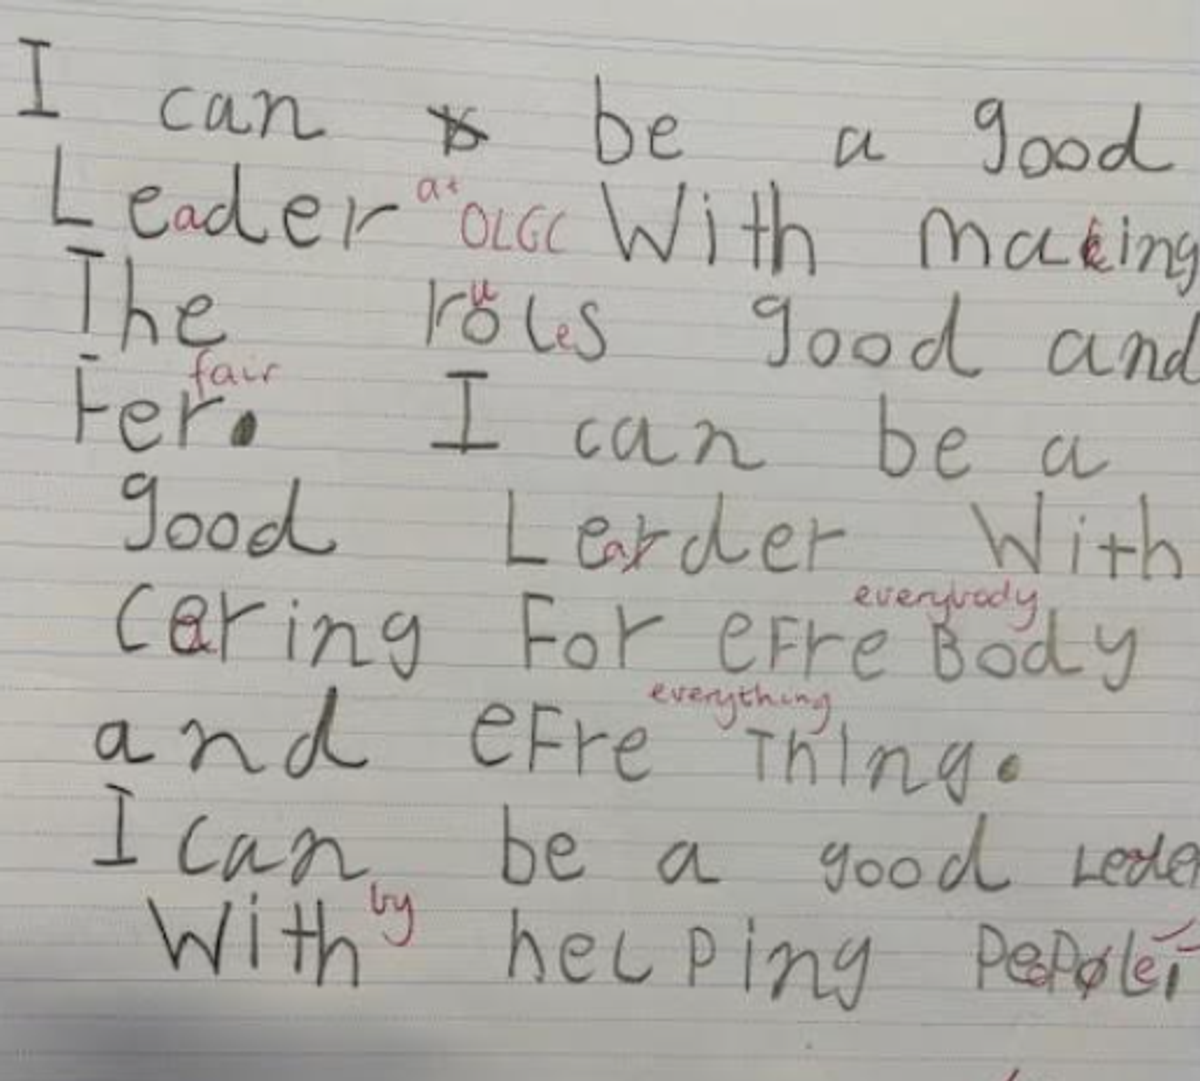 I can be a good
Leader at OLGC With making
The rules good and
Fer. fair I can be a
good Leader With
Caring For eFre Body everybody
and eFre Thing. everything
I can be a good Leder
With by helping